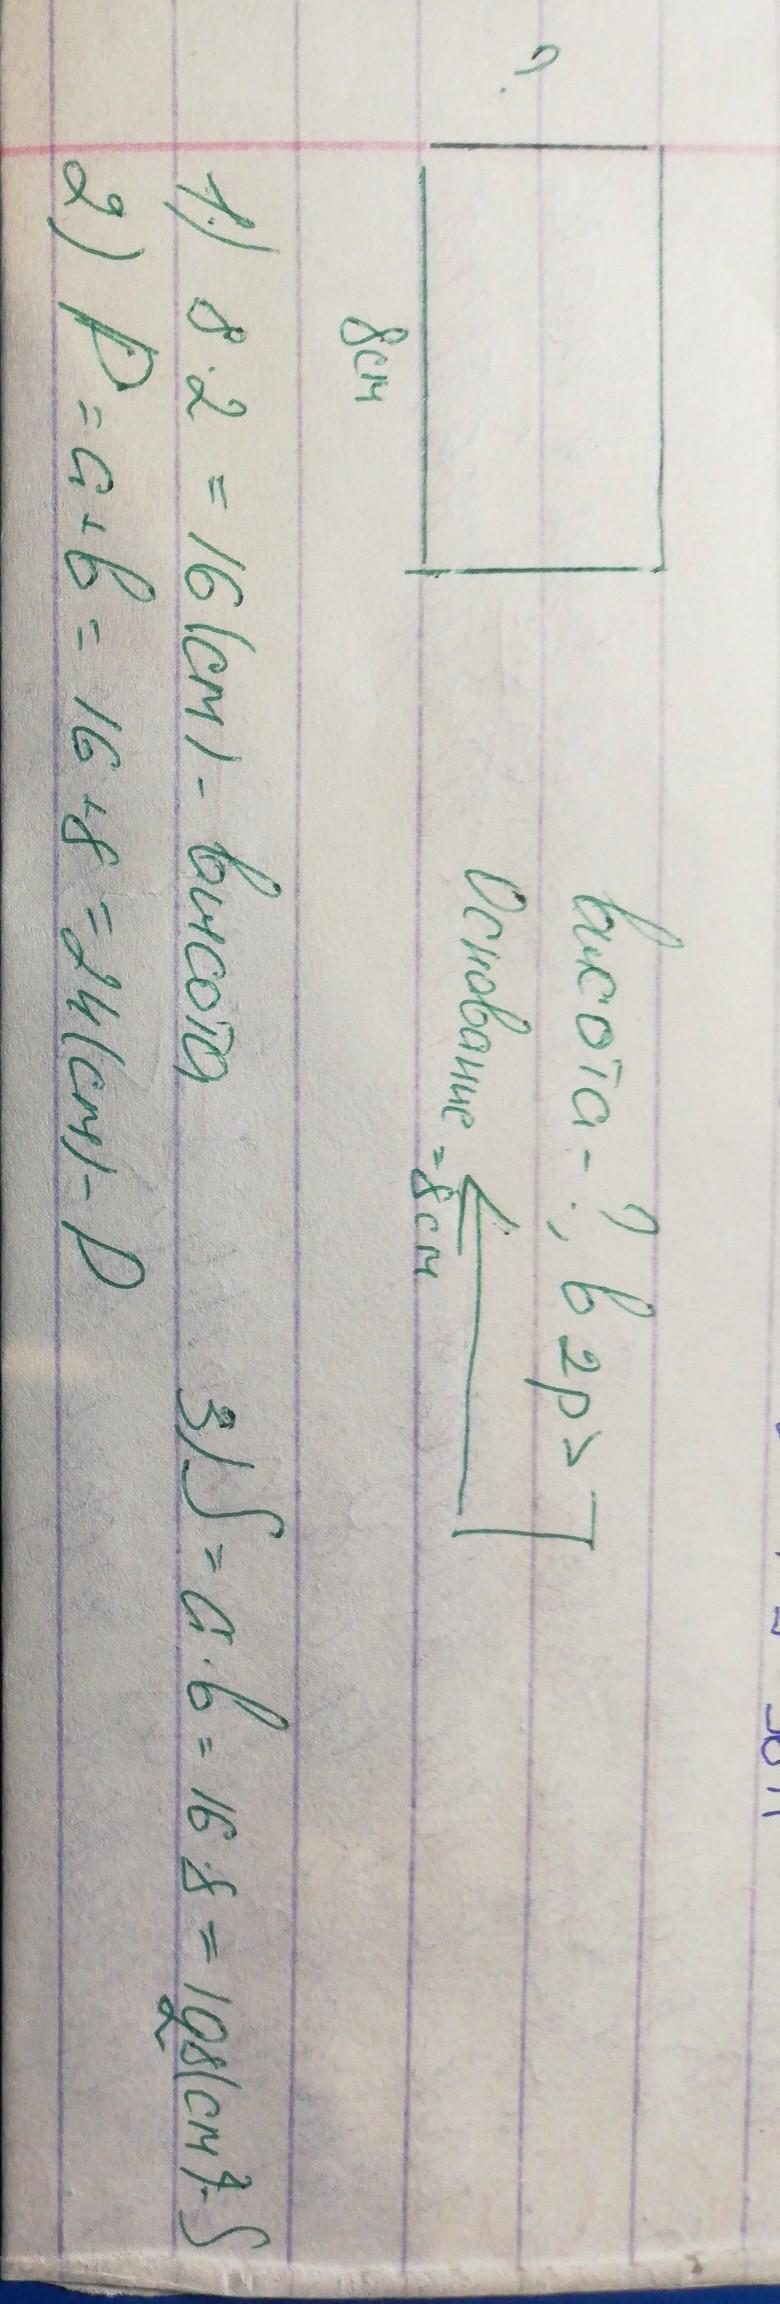 ?
8см
Высота - ?, в 2р >
Основание = 8см
1) 8 · 2 = 16 (см) - высота
2) P = a + b = 16 + 8 = 24 (см) - P
3) S = a · b = 16 · 8 = 128 (см²) - S